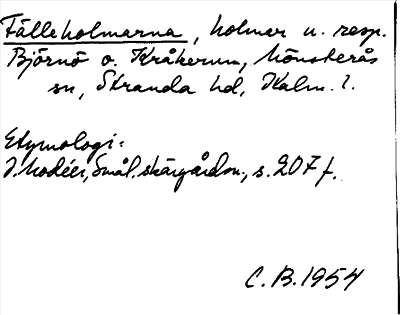 Fälleholmarna, holmar u. resp.
Björnö o. Kråkerum, Mönsterås
sn, Stranda hd, Kalm. l.
Etymologi:
I. Modéer, Smål. skärgården, s. 207 f.
C. B. 1954